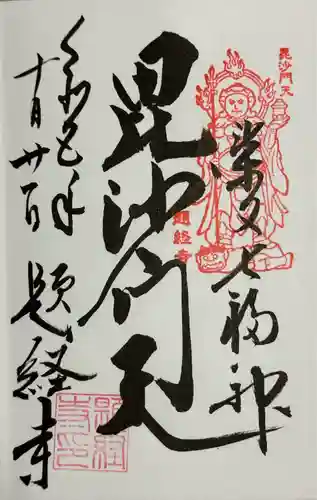 柴又七福神
毘沙門天
毘沙門天
題経寺
十月廿一日
題経寺
題経寺印